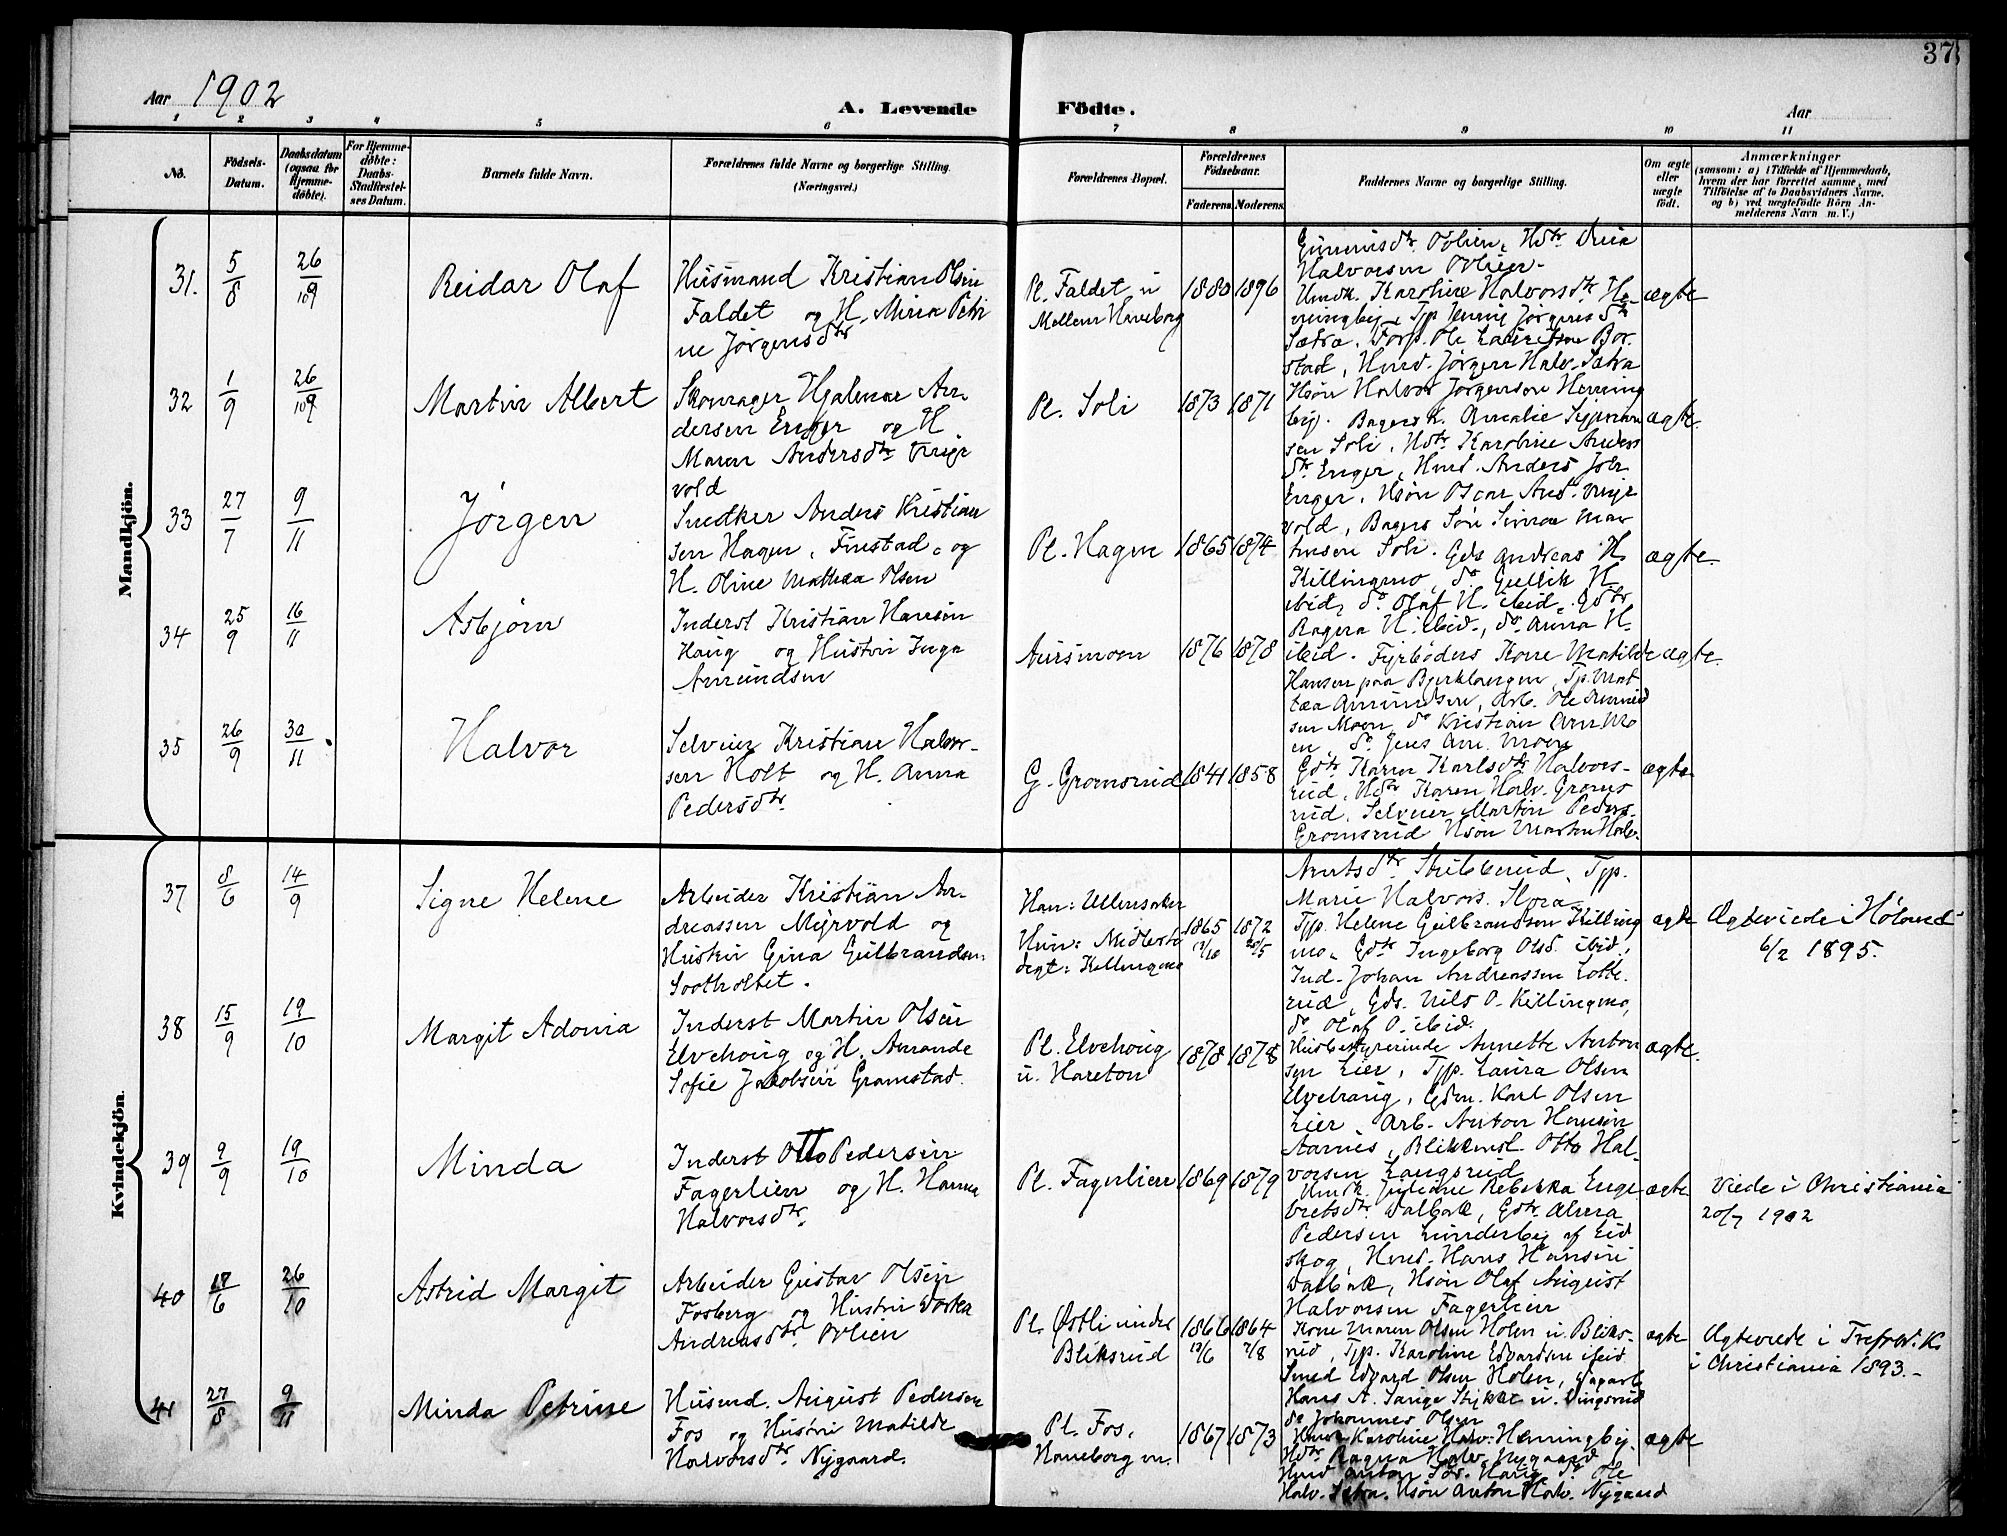 37
Aar 1902
A. Levende Födte.
Aar
1 2 3 4 5 6 7 8 9 10 11
No.
Födsels-Datum.
Daabsdatum (ogsaa for Hjemme-döbte).
For Hjemme-döbte: Daabs-Stadfæstel-ses Datum.
Barnets fulde Navn.
Forældrenes fulde Navne og borgerlige Stilling. (Næringsvei.)
Forældrenes Bopæl.
Forældrenes Födselsaar.
Faderens Moderens
Faddernes Navne og borgerlige Stilling.
Om ægte eller uægte födt.
Anmærkninger
(sansom: a) i Tilfælde af Hjemmedaab,
hvem der har forrettet samme, med
Tilföielse af to Daabsvidners Navne.
og b) ved uægtefödte Börn An-
melderens Navn m. V.)
Mandkjön.
31. 5/8 26/109 Reidar Olaf
Husmand Kristian Olsen
Faldet og H. Petri
ne Jørgensdtr
Pl. Faldet u
Mellem Haneborg
1880 1896
Halvorsen Ovlien
Karoline Halvorsdtr He
Jørgens dtr
Sætra, Ole Lauritsen Bor
stad, Hmd. Jørgen Halv. Sætra
ægte
32 1/9 26/109 Martin Albert
Skomager Hjalmar An
dersen Enger og H
Maren Andersdtr
vold
Pl. Soli
1873 1871
Hsøn Halvor Jørgensen Henning
by. Bagersk. Amalie
sen Soli, Hdtr Karoline Anders
dtr Enger, Hmd. Anders Joh
Enger, Hsøn Oscar And.
vold, Bagers Søn Simon Mar
tinsen Soli.
ægte.
33 27/7 9/11 Jørgen
Snedker Anders Kristian
sen Hagen, Finstad, og
H. Oline Mathea Olsen
Pl. Hagen
1865 1874
Gds Andreas H.
Killingmo, do Gullik H.
ibid, do Olaf H. ibid, Gdtr
Ragna H. ibid., do Anna H.
ibid.
ægte.
34 25/9 16/11 Asbjørn
Inderst Kristian Hansen
Haug og Hustru Inga
Amundsen
Aursmoen
1876 1878
Fyrbøders Kone Matilde
Hansen paa Bjerkhaugen, Tp. Mat
tea Amundsen, Arb. Ole Amund
sen Moen, do Kristian Am Mo
en, do Jens Am. Moen
ægte.
35 26/9 30/11 Halvor
Selveier Kristian Halvor-
sen Holt og H. Anna
Pedersdtr
G. Gromsrud
1841 1858
Gdtr Karen Karlsdtr Halvors-
rud, Hdtr Karen Halv. Groms
rud, Selveier Martin Peders.
Gromsrud Hsøn Morten Halv.
ægte
Kvindekjön.
37 8/6 14/9 Signe Helene
Arbeider Kristian An
dreassen Myrvold og
Hustru Gina Gulbrandsen
Sootholtet.
Han: Ullensaker
Hun: Midlerti
digt: Killingmo
1865 12/10 1872 20/5
Marie Halvors.
Tjp. Helene Gulbrandsen Killing
mo, Gdtr Ingeborg Olsd. ibid,
Ind. Johan Andreassen Lotte
rud, Gds. Nils O. Killingmo,
do Olaf O. ibid.
ægte
Ægteviede i Høland
6/2 1895.
38 15/9 19/10 Margit Adonia
Inderst Martin Olsen
Elvehoug og H. Amande
Sofie Jakobsen Gramstad.
Pl. Elvehoug
u. Hareton
1878 1878
Husbestyrerinde Annette Anton
sen Lier, Tjp. Laura Olsen
Elvehaug, Gdm. Karl Olsen
Lier, Arb. Anton Hansen
Aarnes, Blikkensl. Otto Hal-
vorsen Langsrud
ægte.
39 2/9 19/10 Minda
Inderst Otto Pedersen
Fagerlien og H. Hanna
Halvorsdtr
Pl. Fagerlien
1869 1879
Hmdk. Juliane Rebekka Enge
bretsdtr Dalbak, Gdtr Alvera
Pedersen Lunderby af Eid
skog, Hmd. Hans Hansen
Dalbak, Hsøn Olaf August
Halvorsen Fagerlien
ægte
Viede i Christiania
20/7 1902
40 18/6 26/10 Astrid Margit
Arbeider Gustav Olsen
Fosberg og Hustru
Andreasdtr Ovlien
Pl. Østli under
Bliksrud
1866 12/6 1864 7/8
Kone Maren Olsen Holen u. Bliks-
rud, Tjp. Karoline Edvardsen ibid
Smed Edvard Olsen Holen,
Hans A. Stykket u.
do Johannes Olsen
ægte
Ægteviede i Trefold. K.
i Christiania 1893.-
41 27/8 9/11 Minda Petrine
Husmd. August Pedersen
Fos og Hustru Matilde
Halvorsdtr Nygaard.
Pl. Fos,
Haneborg m.
1867 1873
Karoline Halv. Henningby,
Hdtr Ragna Halv. Nygaard
Hmd Anton do Ole
Halv. Sætra. Hsøn Anton Halv. Nygaard
ægte